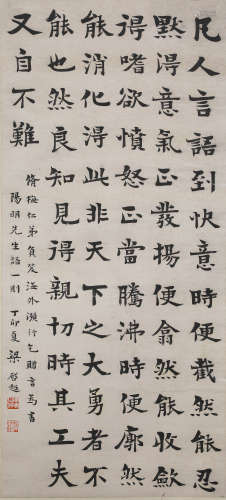 凡人言語到快意時便截然能忍
默得意氣正發揚便翕然能收斂
得嗜欲憤怒正當騰沸便廓然
能消化得此非天下之大勇者不
能也然良知見得親切時其工夫
又自不難
梅仁弟負笈海外瀕行乞贈言為書
陽明先生語一則 丁卯夏 梁啟超